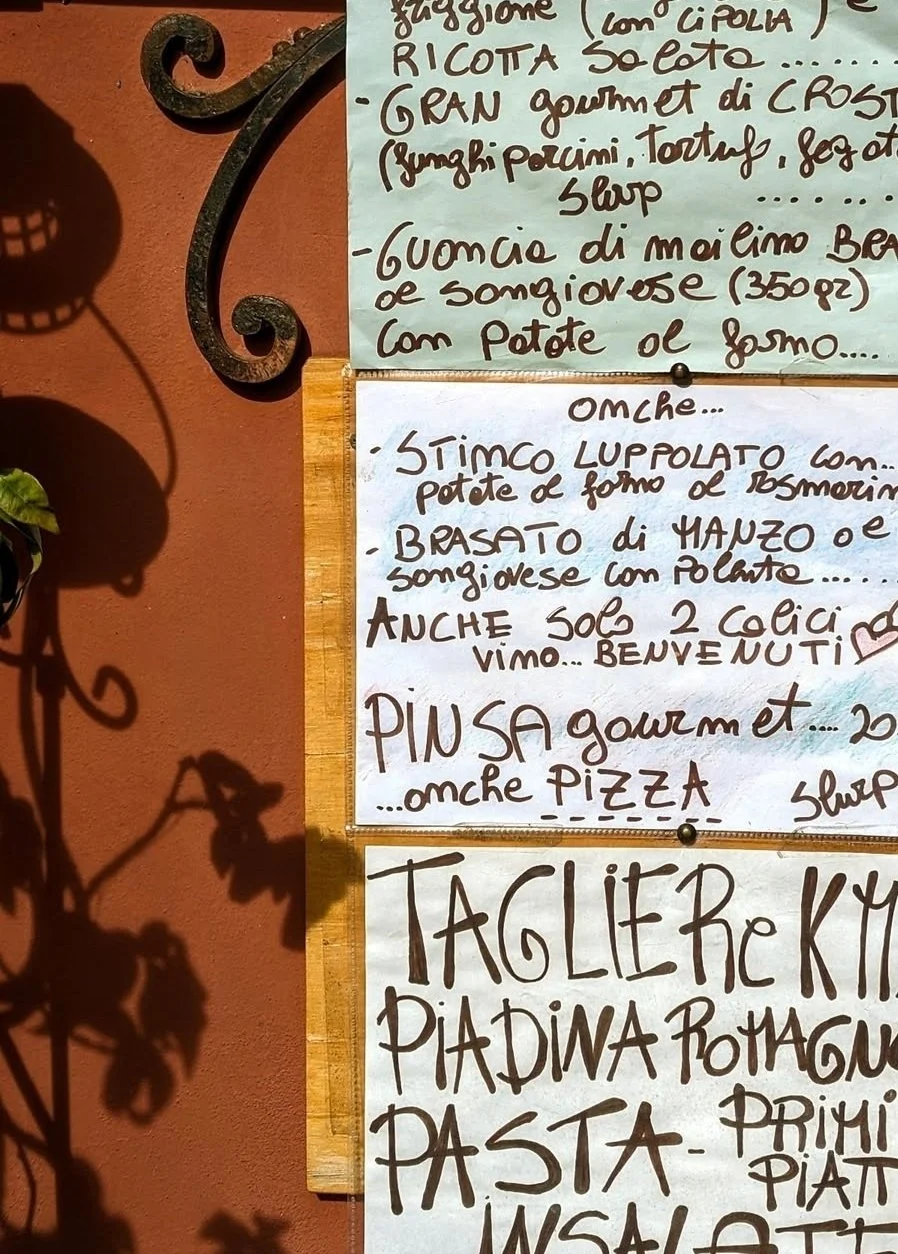 friggione (
con CIPOLLA ) e
RICOTTA Salata ......
- GRAN gourmet di CROST
(funghi porcini, tartufo, fegat
slurp ......
- Guancia di maialino BRA
al sangiovese (350 gr)
con Patate al forno....
anche...
- STINCO LUPPOLATO con..
patate al forno al rosmarin
- BRASATO di MANZO al
sangiovese con Polenta .....
ANCHE Solo 2 Calici
vino... BENVENUTI
PINSA gourmet.... 20
...anche PIZZA
slurp
TAGLIERe KM
PIADINA ROMAGNO
PASTA - PRIMI
PIATT
INSALATE